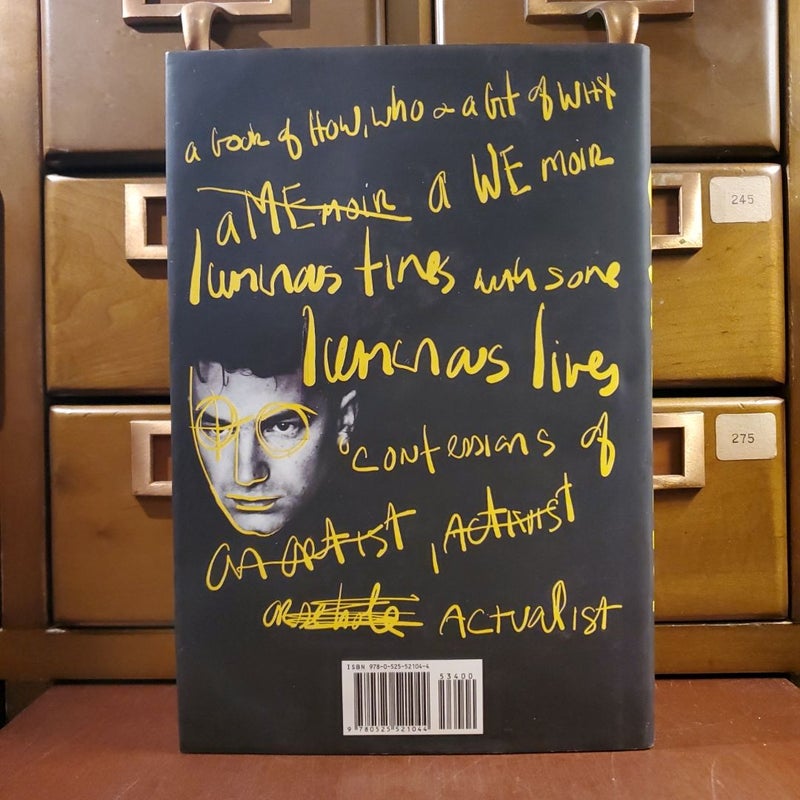 a book of HOW, WHO & a bit of WHY
a MEmoir a WEmoir
luminous times with some
luminous lives
confessions of
an artist, Activist
ACTUALIST
ISBN 978-0-525-52104-4
53400
9 780525 521044
245
275